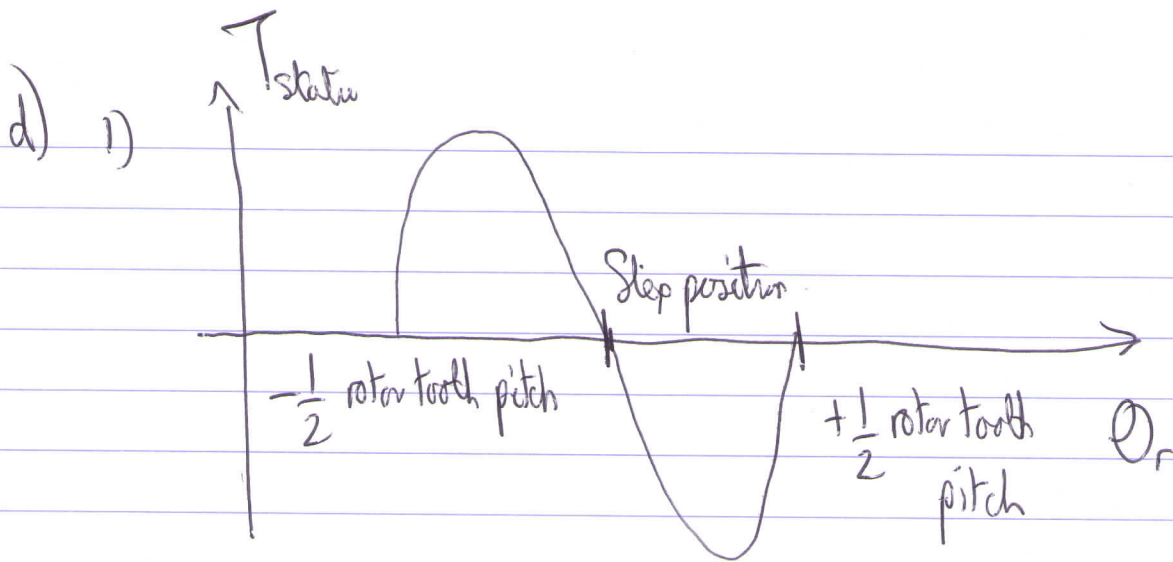 T static
d) 1)
Step position
-1/2 rotor tooth pitch
+1/2 rotor tooth
pitch
θr